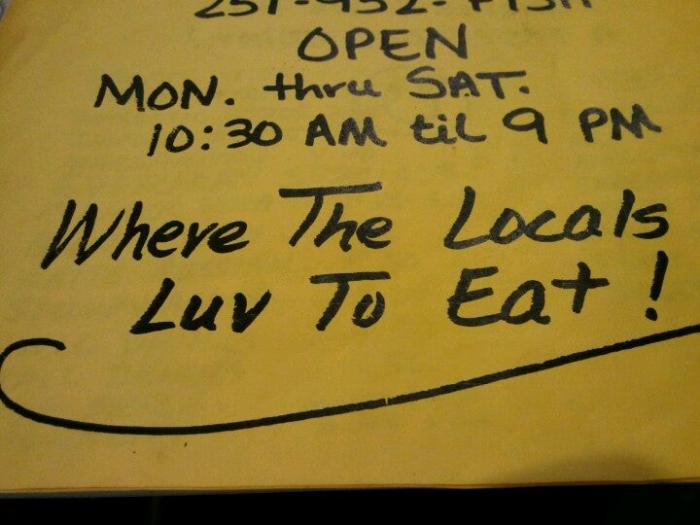 251-952-FISH
OPEN
MON. thru SAT.
10:30 AM til 9 PM
Where The Locals
Luv To Eat!